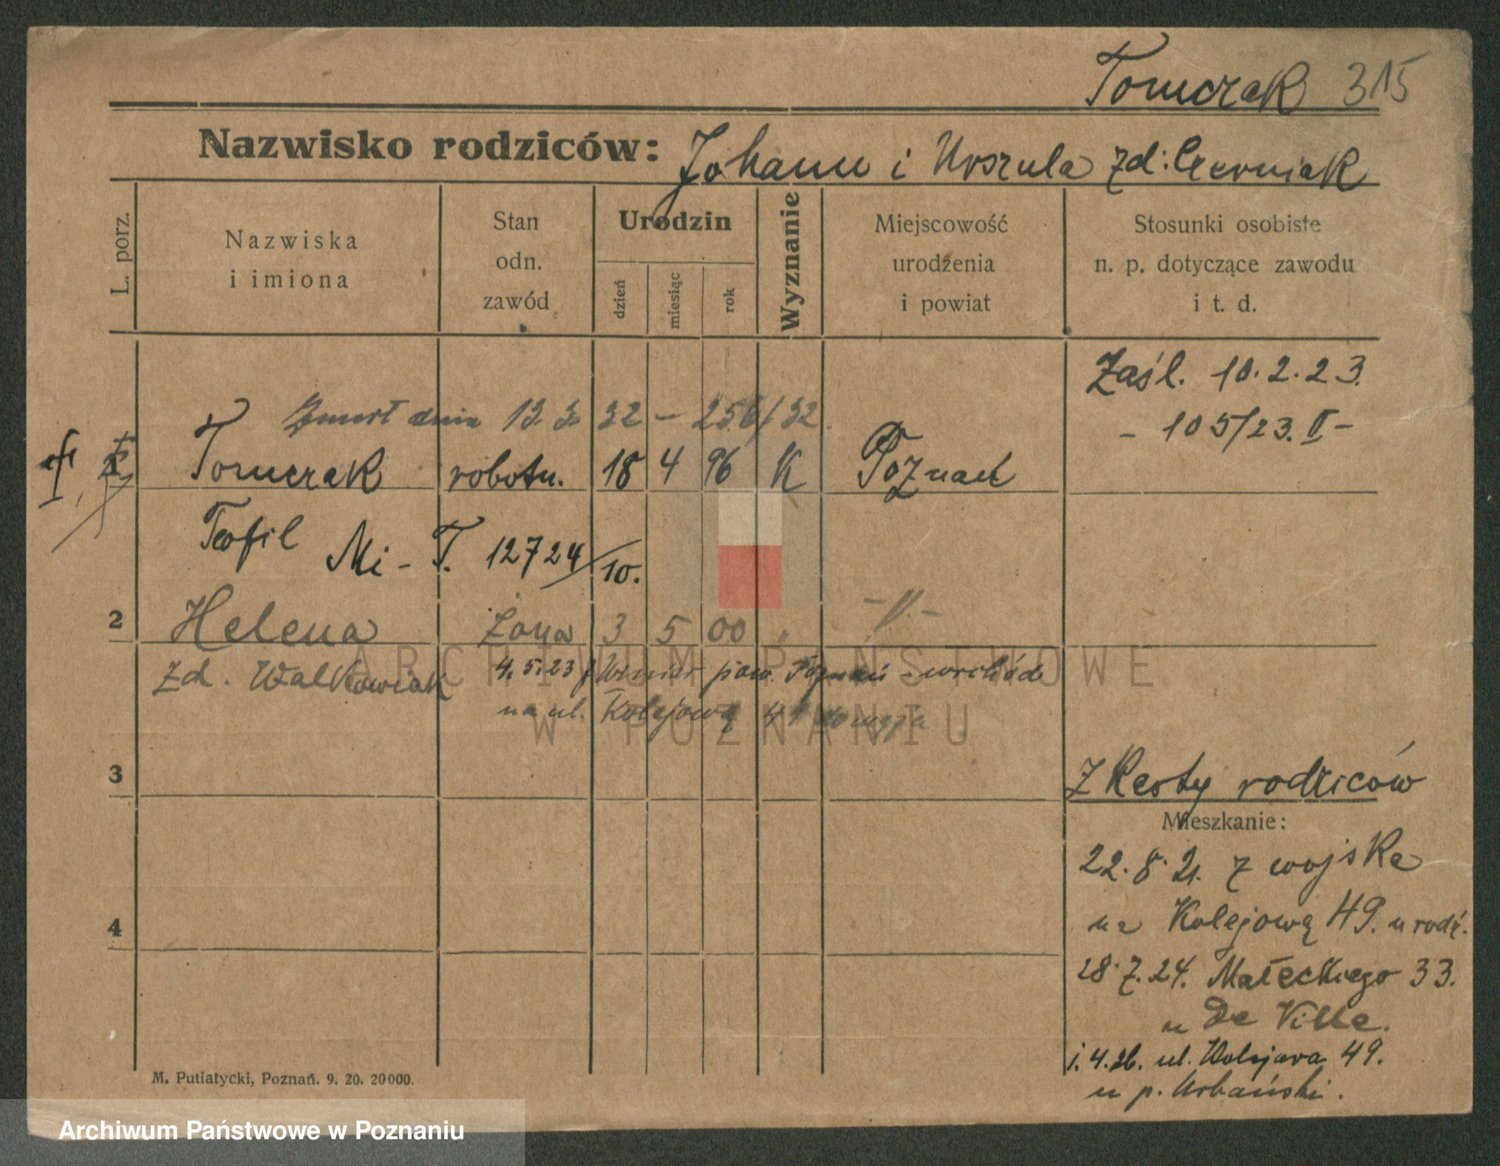 Tomczak 315
Nazwisko rodziców: Johann i Urszula zd: Czerniak
L. porz.
Nazwiska
i imiona
Stan
odn.
zawód
Urodzin
dzień
miesiąc
rok
Wyznanie
Miejscowość
urodzenia
i powiat
Stosunki osobiste
n. p. dotyczące zawodu
i t. d.
Zaśl. 10.2.23.
- 105/23. II -
Zmarł dnia 13. 3. 32 - 256/32.
1 Tomczak robotn. 18 4 96 K Poznań
Teofil Mi - T. 12724/10.
2 Helena żona 3 5 00 " -"-
zd. Walkowiak 4.5.23 z Winiar pow. Poznań - wschód
na ul. Kolejową 49
3
Z Karty rodziców
Mieszkanie:
22.8.21. z wojska
na Kolejową 49. u rodz.
4
28.7.24. Małeckiego 33.
u De Ville.
1.4.26. ul. Kolejowa 49.
u p. Urbański.
M. Putiatycki, Poznań. 9. 20. 20000.
ARCHIWUM PAŃSTWOWE
W POZNANIU
Archiwum Państwowe w Poznaniu